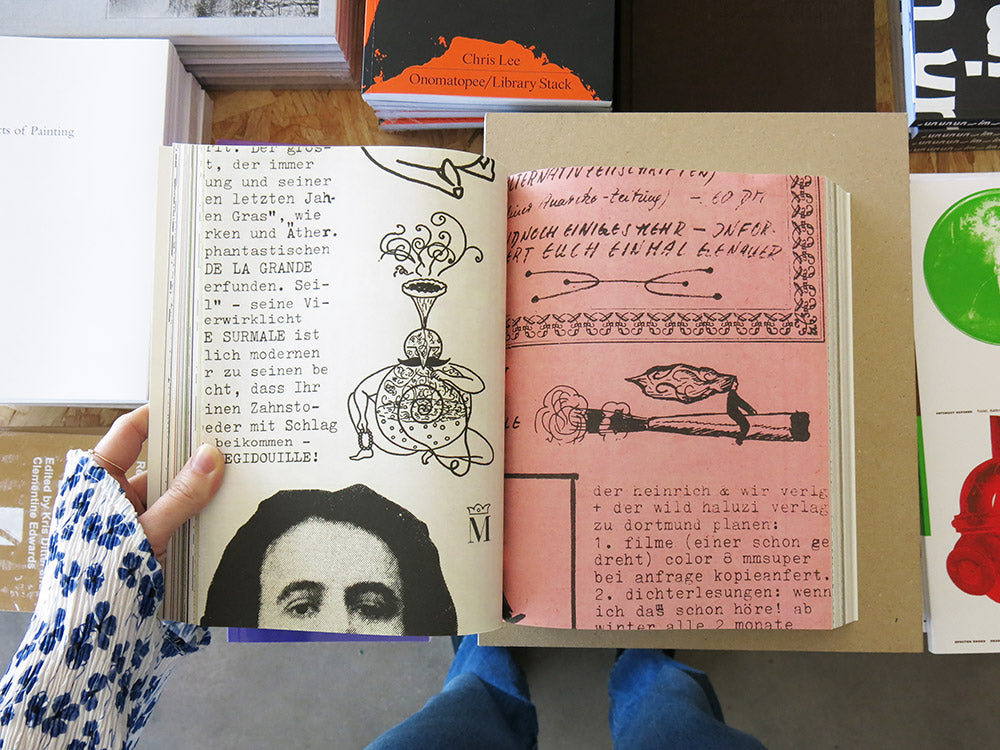 Chris Lee
Onomatopee/Library Stack
cts of Painting
rit. Der grös-
t, der immer
ung und seiner
en letzten Jah-
en Gras", wie
rken und „Äther.
phantastischen
DE LA GRANDE
erfunden. Sei-
l" - seine Vi-
erwirklicht
E SURMALE ist
lich modernen
r zu seinen be
cht, dass Ihr
inen Zahnsto-
eder mit Schlag
beikommen -
EGIDOUILLE!
M
ALTERNATIVZEITSCHRIFTEN)
-Zeitung) - 60 PM
NOCH EINIGES MEHR - INFOR-
ERT EUCH EINMAL GENAUER
LE
der heinrich & wir verlg
+ der wild haluzi verlag
zu dortmund planen:
1. filme (einer schon ge
dreht) color 8 mmsuper
bei anfrage kopieanfert.
2. dichterlesungen: wenn
ich das schon höre! ab
winter alle 2 monate
Edited by Kris Dittm
Clementine Edwards